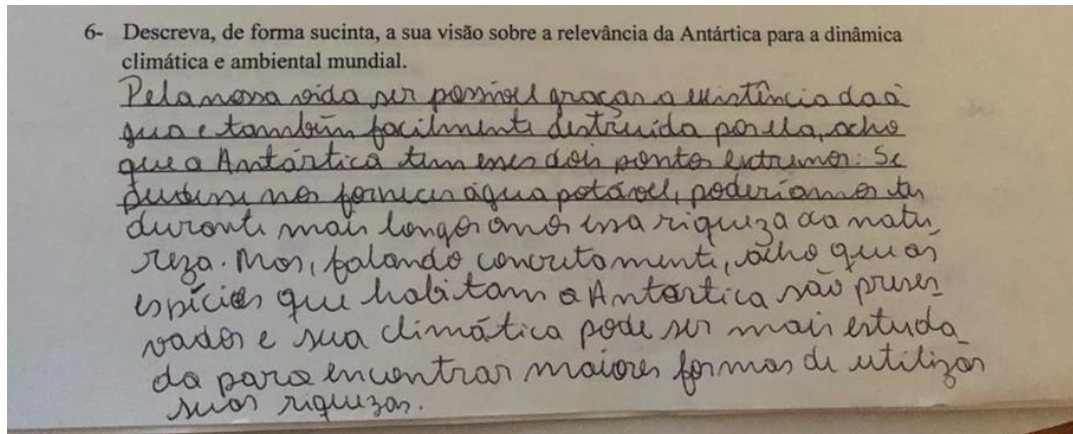 6- Descreva, de forma sucinta, a sua visão sobre a relevância da Antártica para a dinâmica
climática e ambiental mundial.
Pela nossa vida ser possível graças a existência da á
gua e também facilmente destruída por ela, acho
que a Antártica tem esses dois pontos extremos: Se
pudesse nos fornecer água potável, poderíamos ter
durante mais longos anos essa riqueza da natu_
reza. Mas, falando concretamente, acho que as
espécies que habitam a Antártica são preser_
vados e sua climática pode ser mais estuda_
da para encontrar maiores formas de utilizar
suas riquezas.